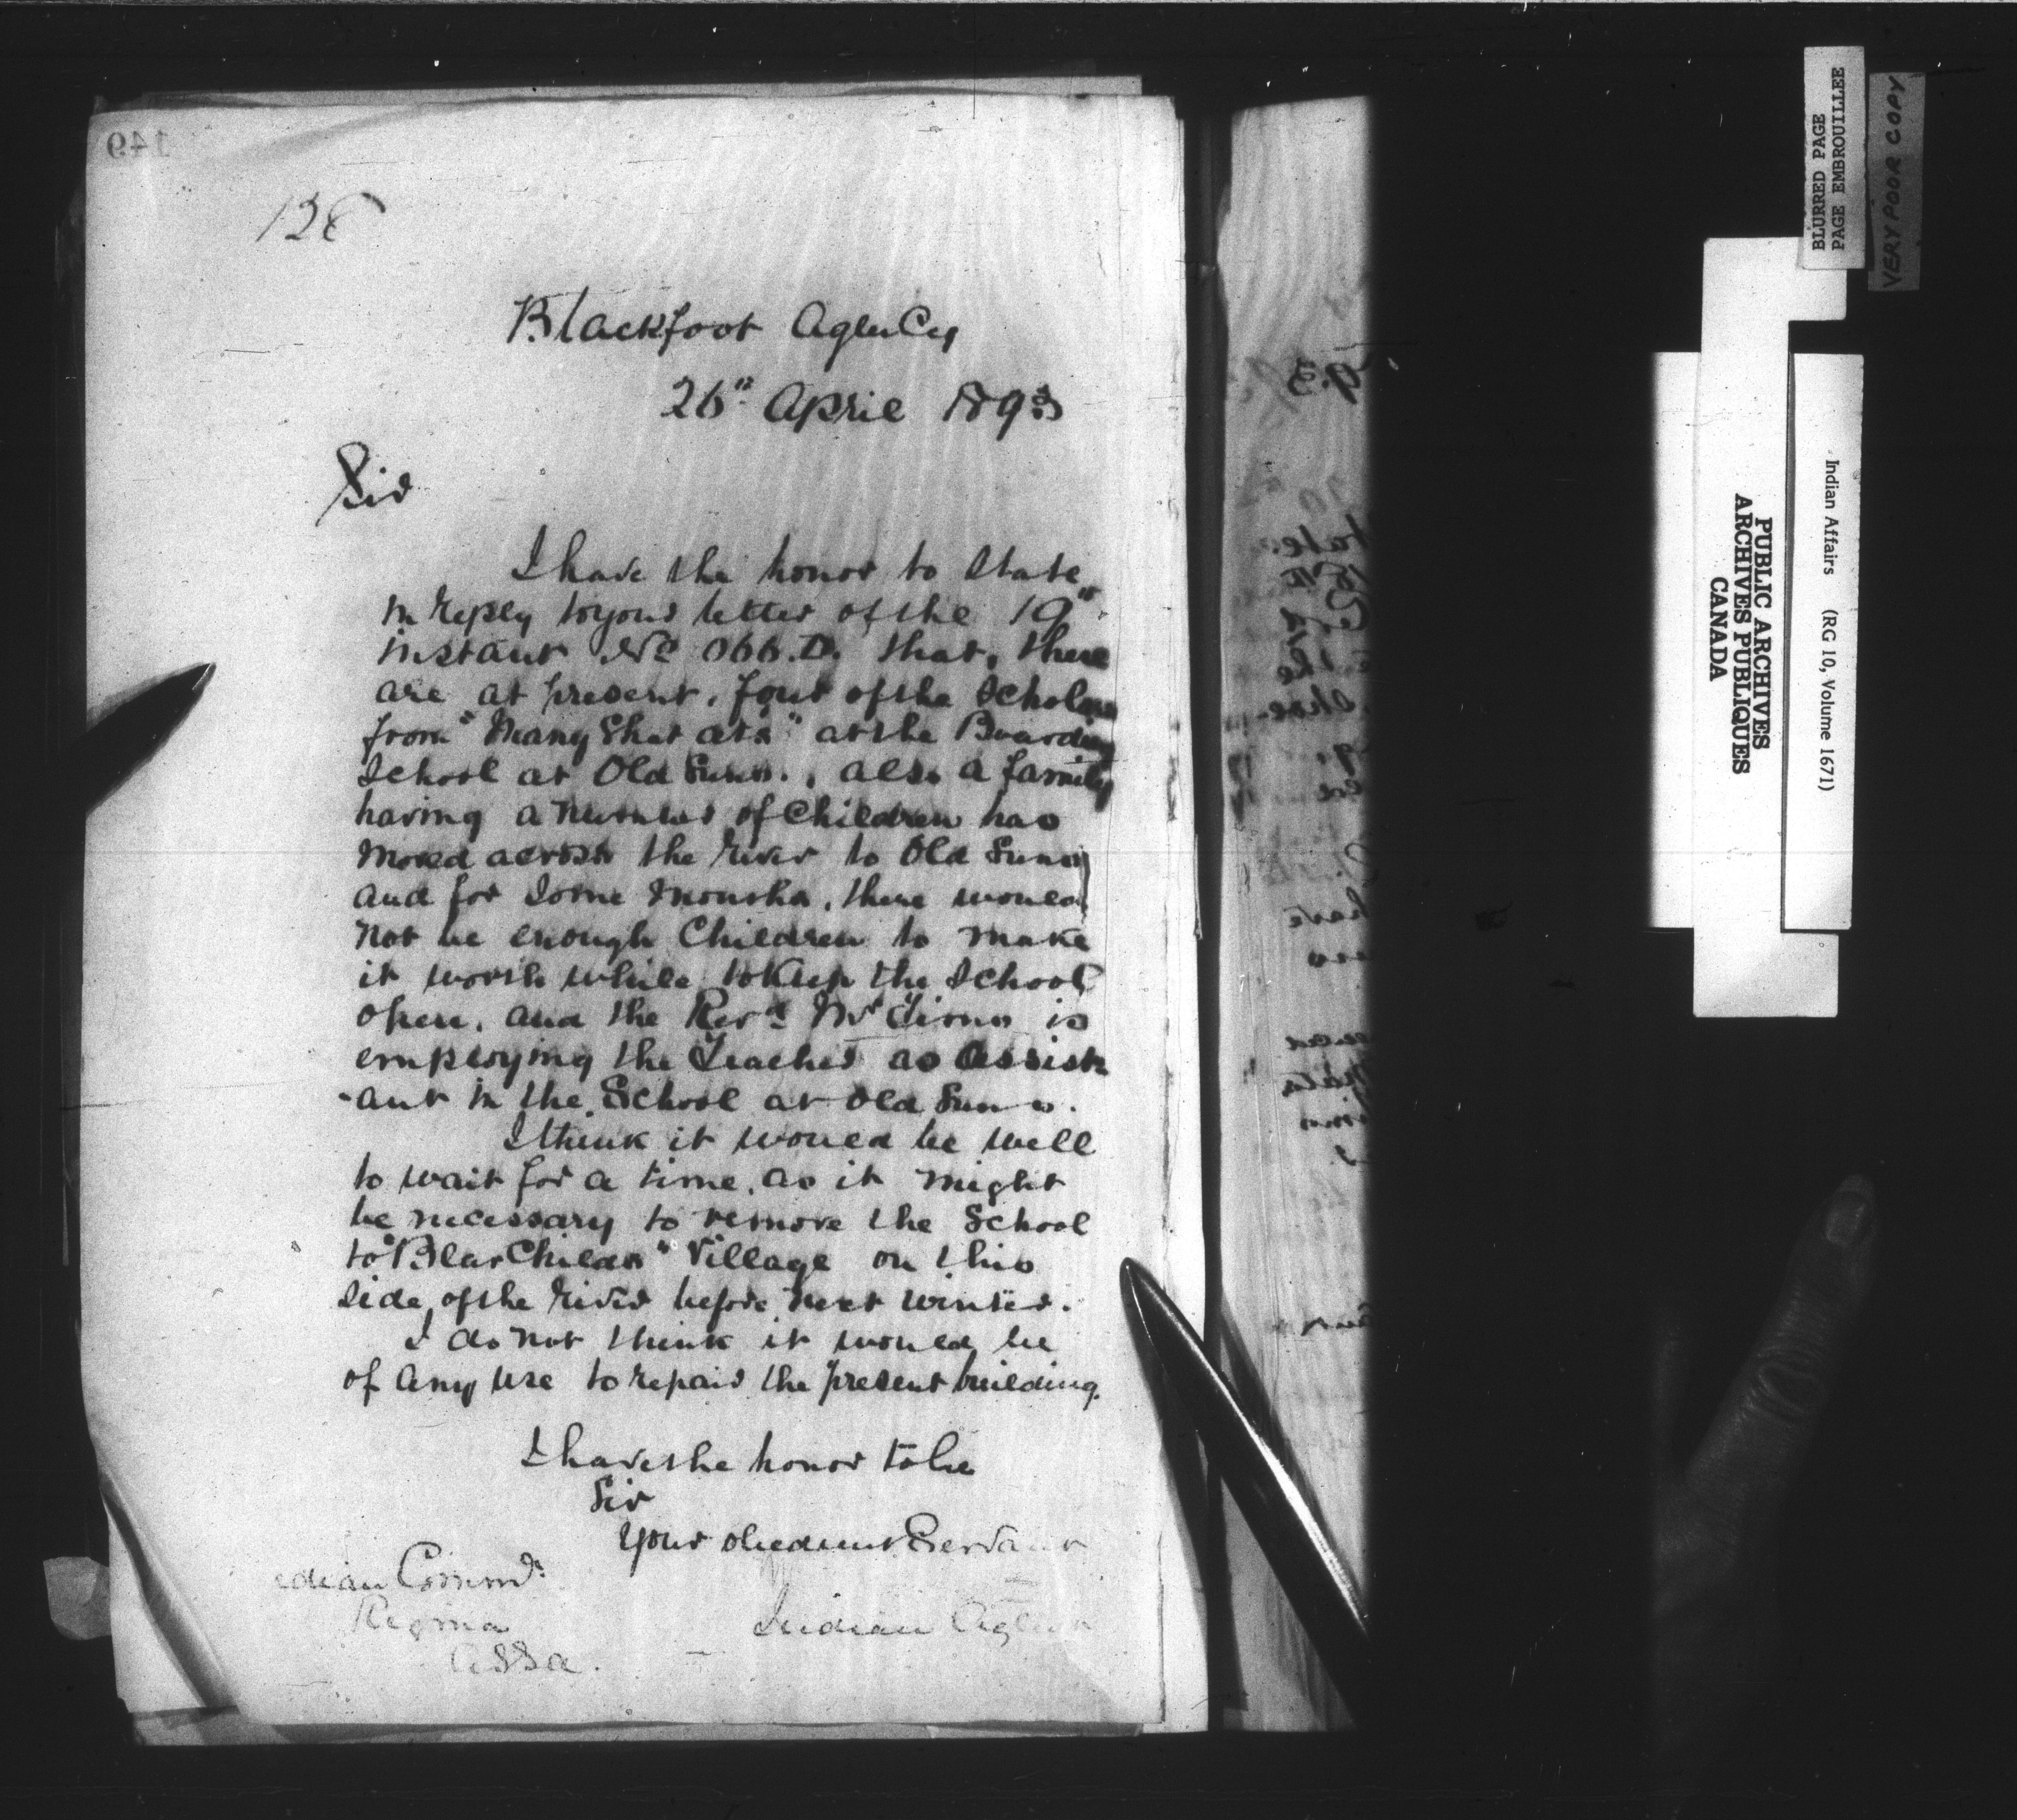 149
128
Blackfoot Agency
26" April 1893
Sir
I have the honor to state
in reply to your letter of the 19"
instant No 066.D. that, there
are at present, four of the scholars
from "Many Shot ats" at the Boarding
School at Old Suns., also a family
having a number of Children has
moved across the river to Old Suns
and for some months, there would
not be enough Children to make
it worth while to keep the School
open, and the Revd Mr Tims is
employing the Teacher as Assist
-ant in the School at Old Suns.
I think it would be well
to wait for a time, as it might
be necessary to remove the School
to Childs" Village on this
side of the river before next winter.
I do not think it would be
of any use to repair the present building.
I have the honor to be
Sir
Your obedient Servant
ndian Commr
Regina
Assa.
Indian Agent
BLURRED PAGE
PAGE EMBROUILLEE
VERY POOR COPY
Indian Affairs (RG 10, Volume 1671)
PUBLIC ARCHIVES
ARCHIVES PUBLIQUES
CANADA